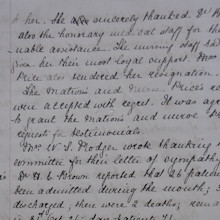 to her. She also sincerely thanked Dr B
also the honorary medical staff for th
uable assistance. The nursing staff had
given her their most loyal support.
Price also rendered her resignation
The Matron's and Nurse Price's re
were accepted with regret. It was agre
to grant the Matron's and nurse
requests for testimonials.
Mr W. S. Rodger wrote thanking
committee for their letter of sympathy
Dr H. E. Brown reported that 26 patien
been admitted during the month; 3
discharged; there were 2 deaths; remai